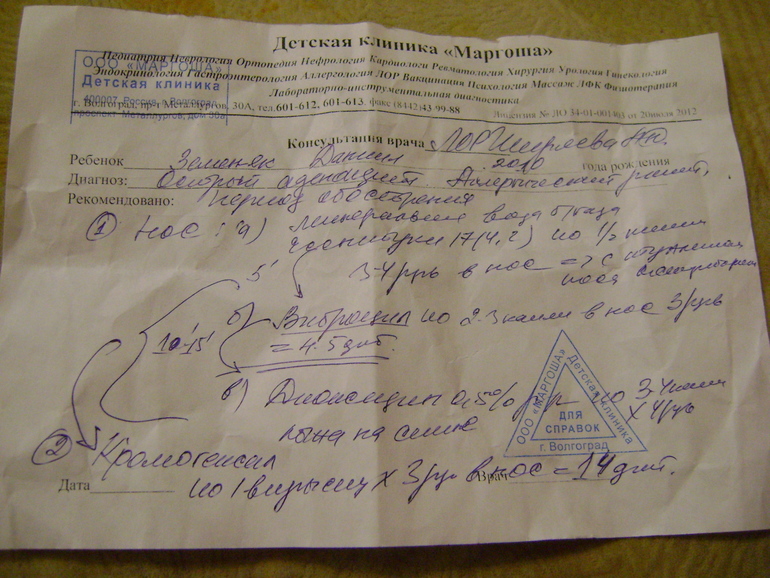 Детская клиника «Маргоша»
Педиатрия Неврология Ортопедия Нефрология Кардиология Ревматология Хирургия Урология Гинекология
Эндокринология Гастроэнтерология Аллергология ЛОР Вакцинация Психология Массаж ЛФК Физиотерапия
Лабораторно-инструментальная диагностика
г. Волгоград, пр-т Металлургов, 30А, тел.601-612, 601-613, факс (8442)43-99-88
Лицензия № ЛО 34-01-001 от 20июля 2012
ООО «МАРГОША»
Детская клиника
400007, Россия, г. Волгоград
проспект Металлургов, дом 30а
Консультация врача ЛОР
Ребенок Земеняк Даниил 2010 года рождения
Диагноз: Острый аденоидит. Аллергический ринит,
период обострения
Рекомендовано:
① Нос: а) минеральная вода б/газа
по 1/2
3-4 р/д в нос => с
5'
б) Виброцил по 2-3 капли в нос 3 р/д
= 4-5 дн.
10-15'
в) Диоксидин 0,5% р-р по 3-4 капли
x 4 р/д
② Кромогексал
по 1 впрыску x 3 р/д в нос = 14 дн.
Дата
Врач
ООО «МАРГОША» Детская клиника
ДЛЯ
СПРАВОК
г. Волгоград